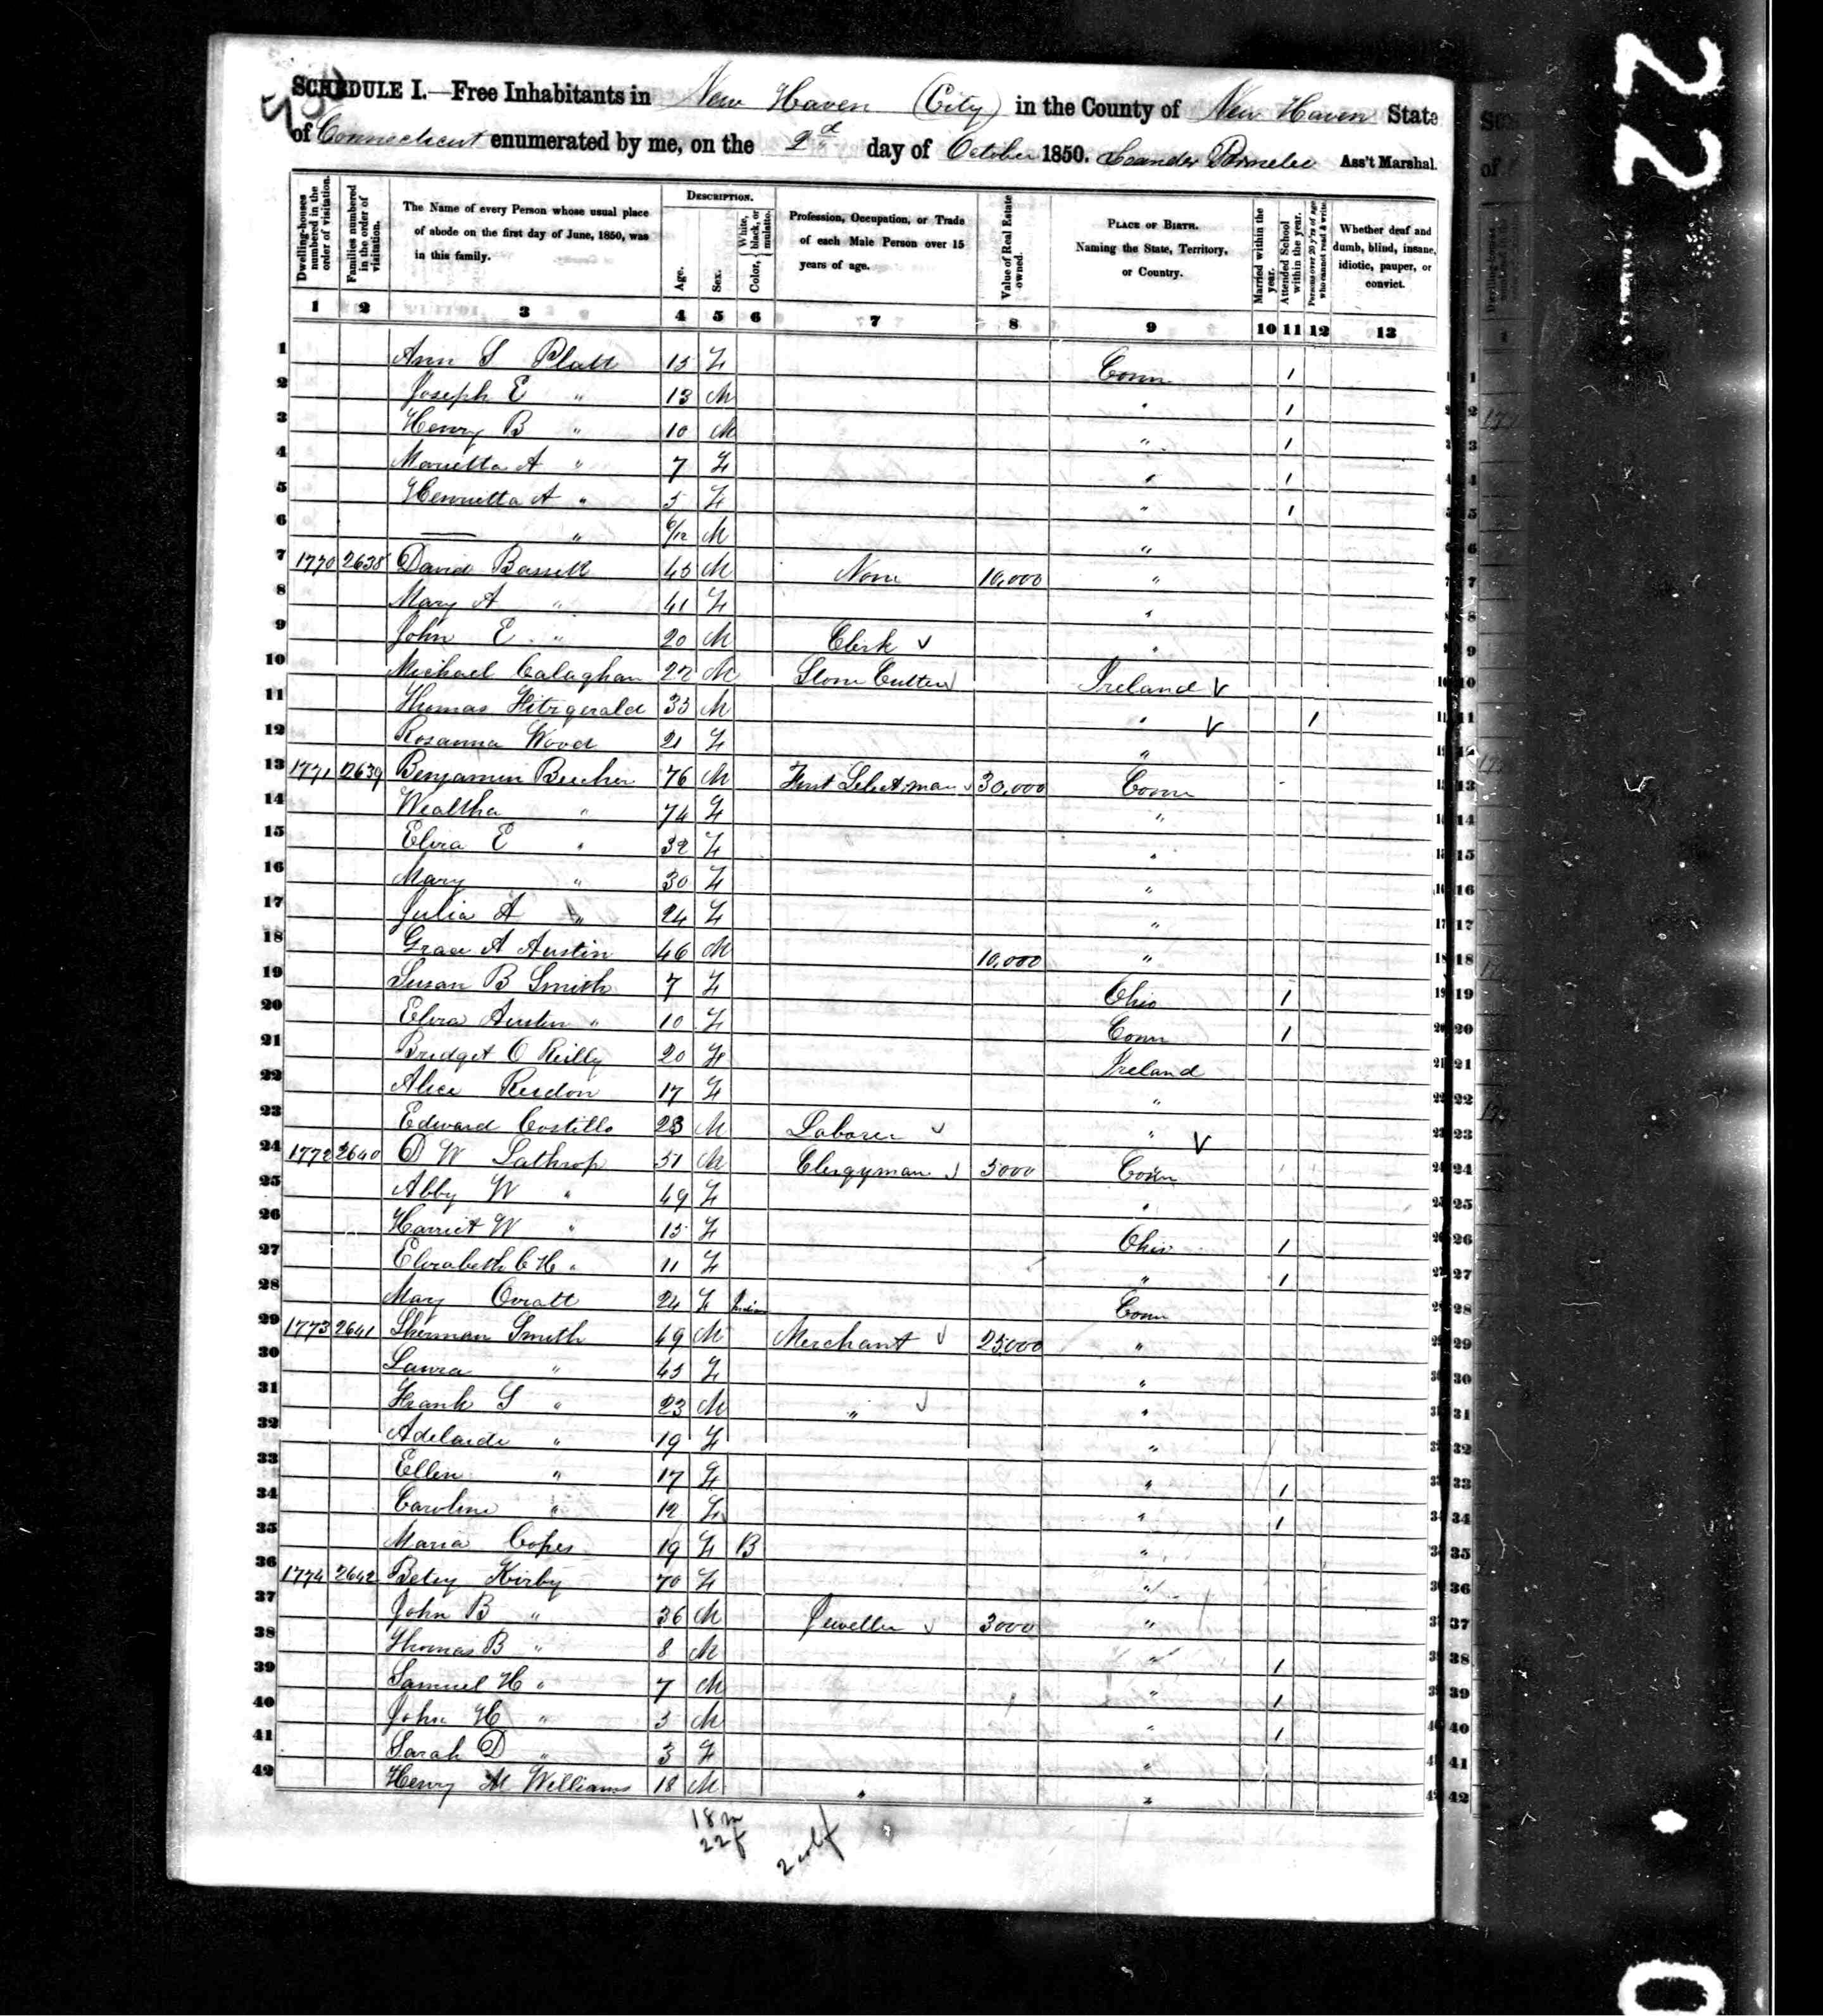 SCHEDULE I.—Free Inhabitants in New Haven (City) in the County of New Haven State
of Connecticut enumerated by me, on the 2d day of October 1850. Leander Parmelee Ass't Marshal.
Dwelling-houses numbered in the order of visitation.
Families numbered in the order of visitation.
The Name of every Person whose usual place of abode on the first day of June, 1850, was in this family.
DESCRIPTION.
Age.
Sex.
Color, White, black, or mulatto.
Profession, Occupation, or Trade of each Male Person over 15 years of age.
Value of Real Estate owned.
PLACE OF BIRTH. Naming the State, Territory, or Country.
Married within the year.
Attended School within the year.
Persons over 20 y'rs of age who cannot read & write.
Whether deaf and dumb, blind, insane, idiotic, pauper, or convict.
1 2 3 4 5 6 7 8 9 10 11 12 13
1 Ann S Platt 15 F Conn 1
2 Joseph E " 13 M " 1
3 Henry B " 10 M " 1
4 Marietta A " 7 F " 1
5 Henrietta A " 5 F " 1
6 — " 6/12 M "
7 1770 2638 David Bassett 45 M None 10,000 "
8 Mary A " 41 F "
9 John E " 20 M Clerk "
10 Michael Calaghan 22 M Stone Cutter Ireland
11 Thomas Fitzgerald 33 M " 1
12 Rosanna Wood 21 F "
13 1771 2639 Benjamin Beecher 76 M First Selectman 30,000 Conn
14 Wealtha " 74 F "
15 Elvira E " 32 F "
16 Mary " 30 F "
17 Julia A " 24 F "
18 Grace A Austin 46 M 10,000 "
19 Susan B Smith 7 F Ohio 1
20 Elvira Austin " 10 F Conn 1
21 Bridget O Reilly 20 F Ireland
22 Alice 17 F "
23 Edward Costillo 23 M Laborer "
24 1772 2640 D W Lathrop 51 M Clergyman 5000 Conn
25 Abby W " 49 F "
26 Harriet W " 15 F Ohio 1
27 Elizabeth C H " 11 F " 1
28 Mary 24 F Indian Conn
29 1773 2641 Sherman Smith 49 M Merchant 25,000 "
30 Laura " 45 F "
31 Frank S " 23 M " "
32 Adelaide " 19 F "
33 Ellen " 17 F " 1
34 Caroline " 12 F " 1
35 Maria Copes 19 F B "
36 1774 2642 Betsy Kirby 70 F "
37 John B " 36 M Jeweller 3000 "
38 Thomas B " 8 M " 1
39 Samuel H " 7 M " 1
40 John H " 5 M " 1
41 Sarah D " 3 F "
42 Henry M Williams 18 M " "
18 m
22 f
2 col f
22
0